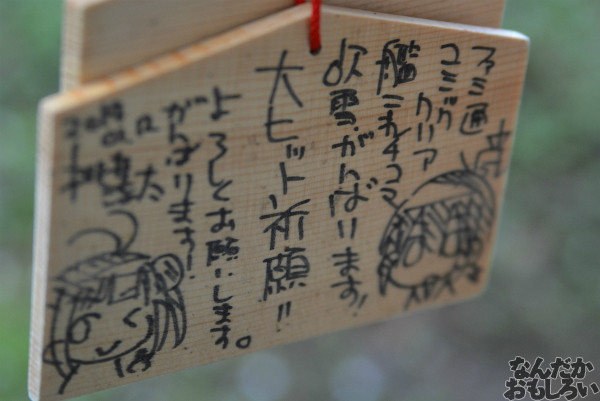 ファミ通
コミック
クリア
艦これ4コマ
吹雪、がんばります!
大ヒット祈願!!
よろしくお願いします。
がんばります!
なんだか
おもしろい